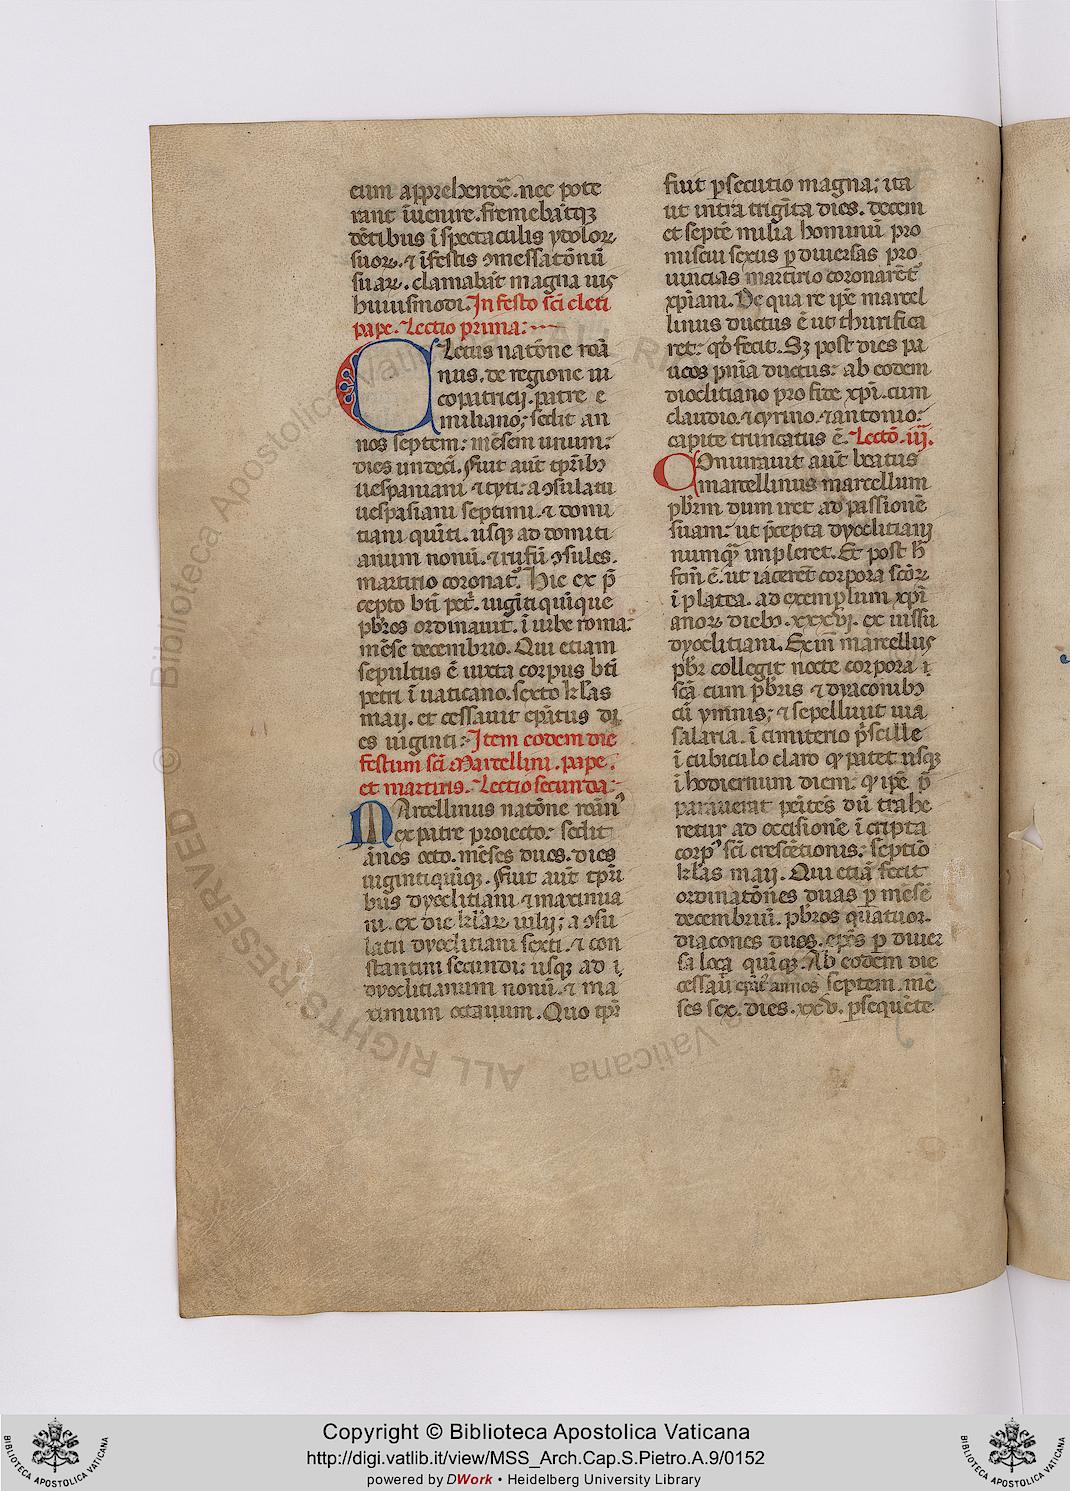 cum apprehendẽ. nec pote
rant ĩuenire. fremebãtqꝫ
dẽtibus ĩ spectaculis ydoloꝝ
suoꝝ. ⁊ ĩ festis ꝯmessatõnũ
suaꝝ. clamabãt magna
huiusmodi. In festo sc̃i cleti
pape. Lectio prima:
Cletus natõne roã
nus. de regione ui
copatricij. patre e
miliano; sedit an
nos septem: mẽsem unum:
dies undecĩ. Fuit aut̃ tp̃rib᷒
uespaniani ⁊ tyti: a ꝯsulatu
uespasiani septimi. ⁊ domi
tiani quĩti. usqꝫ ad domiti
anum nonũ. ⁊ rufũ ꝯsules.
martirio coronat᷒. Hic ex p̃
cepto bt̃i pet̃. uigĩti quĩque
pb̃ros ordinauit. ĩ urbe roma:
mẽse decembrio. Qui etiam
sepultus ẽ iuxta corpus bt̃i
petri ĩ uaticano. sexto kl̃as
maij. et cessauit ep̃atus di
es uiginti: Item eodem die
festum sc̃i Marcellini. pape.
et martiris. Lectio secunda:
Marcellinus natõne roãn᷒
ex patre proiecto: sedit
ãnos octo. mẽses duos. dies
uigintiquĩqꝫ. Fuit aut̃ tp̃ri
bus dyoclitiani ⁊ maximia
ni. ex die kl̃aꝝ iulij; a ꝯsu
latu dyoclitiani sexti. ⁊ con
stantini secundi: usqꝫ ad
dyoclitianum nonũ. ⁊ ma
ximum octauum. Quo tp̃r
fiut ꝑsecutio magna; ita
ut intra trigĩta dies. decem
et septẽ milia hominũ pro
miscui sexus ꝑ diuersas pro
uincias martirio coronarẽt
xp̃iani. De qua re ip̃e marcel
linus ductus ẽ ut thurifica
ret: qđ fecit. Sꝫ post dies pa
ucos pñia ductus: ab eodem
dioclitiano pro fide xp̃i. cum
claudio. ⁊ cyrino. ⁊ antonio:
capite truncatus ẽ. Lectõ. iij.
Coniurauit aut̃ beatus
marcellinus marcellum
pb̃rm dum iret ad passionẽ
suam: ut p̃cepta dyoclitiani
numqᷓ impleret. Et post h̃
fcm̃ ẽ. ut iacerẽt corpora sc̃oꝝ
ĩ platea. ad exemplum xp̃i
anoꝝ dieb᷒. xxxvj. ex iussu
dyoclitiani. Exim̃ marcellus
pb̃r collegit nocte corpora
sc̃a cum pb̃ris ⁊ diaconib᷒
cũ ymnis; ⁊ sepelliuit uia
salaria. ĩ cimiterio p̃scille
ĩ cubiculo claro qᷓ patet usqꝫ
ĩ hodiernum diem: qᷓ ip̃e p̃
parauerat penitẽs dũ trahe
retur ad occisionẽ ĩ cripta
corp᷒ sc̃i crescẽtionis: septiõ
kl̃as maij. Qui etiã fecit
ordinatõnes duas ꝑ mẽsẽ
decembriũ. pb̃ros quatuor.
diacones duos. ep̃os ꝑ diuer
sa loca quĩqꝫ. Ab eodẽm die
cessaũ ep̃at᷒ annos septem. mẽ
ses sex. dies. xxv. ꝑsequẽte
© Biblioteca Apostolica Vaticana ALL RIGHTS RESERVED
Copyright © Biblioteca Apostolica Vaticana
http://digi.vatlib.it/view/MSS_Arch.Cap.S.Pietro.A.9/0152
powered by DWork • Heidelberg University Library
BIBLIOTECA APOSTOLICA VATICANA
BIBLIOTECA APOSTOLICA VATICANA